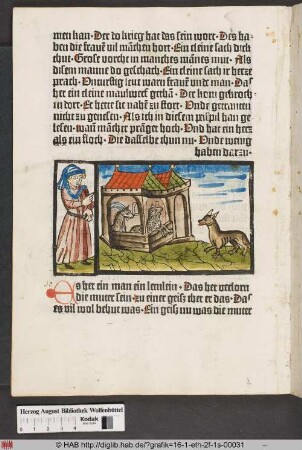 men han· Der do krieg hat des sein wort· Des ha-
ben die frauwen manchen hort· Ein cleine sach dick
thut· Grose vorcht in manches mannes mut· Als
disem manne do geschach· Ein cleine sach in hertze
prach· Unweislig leut waren frauwe und man· Das
her ein cleine
in dort· Er hette sie nahe zu stort· Unde
nicht zu genesen· Als ich in disem puspil han ge
lesen· wan mancher preger hoch· Und hat ein hertz
als ein floch· Die dasselbe thun nu· Und wenig
haben darzu·
Es het ein man ein lemlein· Das het verlorn
die muter sein· zu einer geisz thet er das· Das
es vil wol behut was· Ein geisz nu was die muter
Herzog August Bibliothek Wolfenbüttel
Kodak
© HAB http://diglib.hab.de/?grafik=16-1-eth-2f-1s-00031